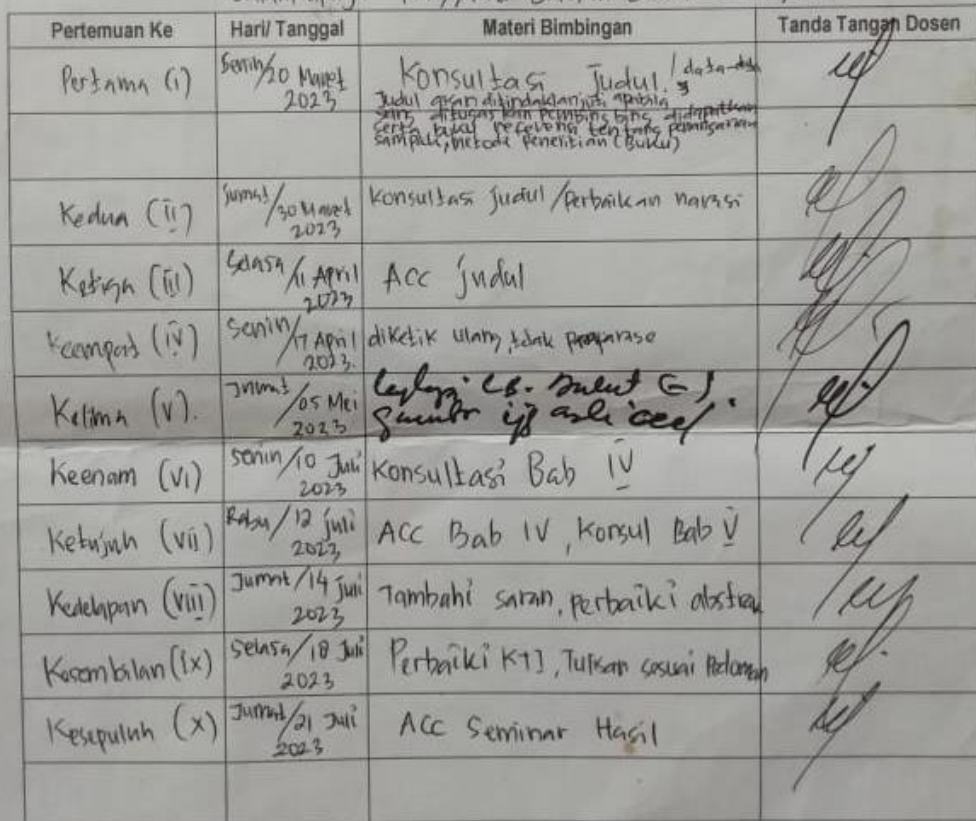 Pertemuan Ke Hari/ Tanggal Materi Bimbingan Tanda Tangan Dosen
Pertama (i) Senin/20 Maret 2023 Konsultasi Judul /data-data
Judul akan ditindaklanjuti apabila
yang ditugaskan pembimbing didapatkan
serta bawa referensi tentang penanganan
sampel, metode penelitian (Buku)
Kedua (ii) Jumat/30 Maret 2023 Konsultasi Judul /Perbaikan narasi
Ketiga (iii) Selasa/11 April 2023 ACC Judul
Keempat (iv) Senin/17 April 2023. diketik ulang, tdak
Kelima (v). Jumat/05 Mei 2023
Keenam (vi) Senin/10 Juli 2023 Konsultasi Bab IV
Ketujuh (vii) Rabu/12 Juli 2023 ACC Bab IV, Konsul Bab V
Kedelapan (viii) Jumat/14 Juli 2023 Tambahi saran, perbaiki abstrak
Kesembilan (ix) Selasa/18 Juli 2023 Perbaiki KTI, Tuliskan sesuai Pedoman
Kesepuluh (x) Jumat/21 Juli 2023 ACC Seminar Hasil